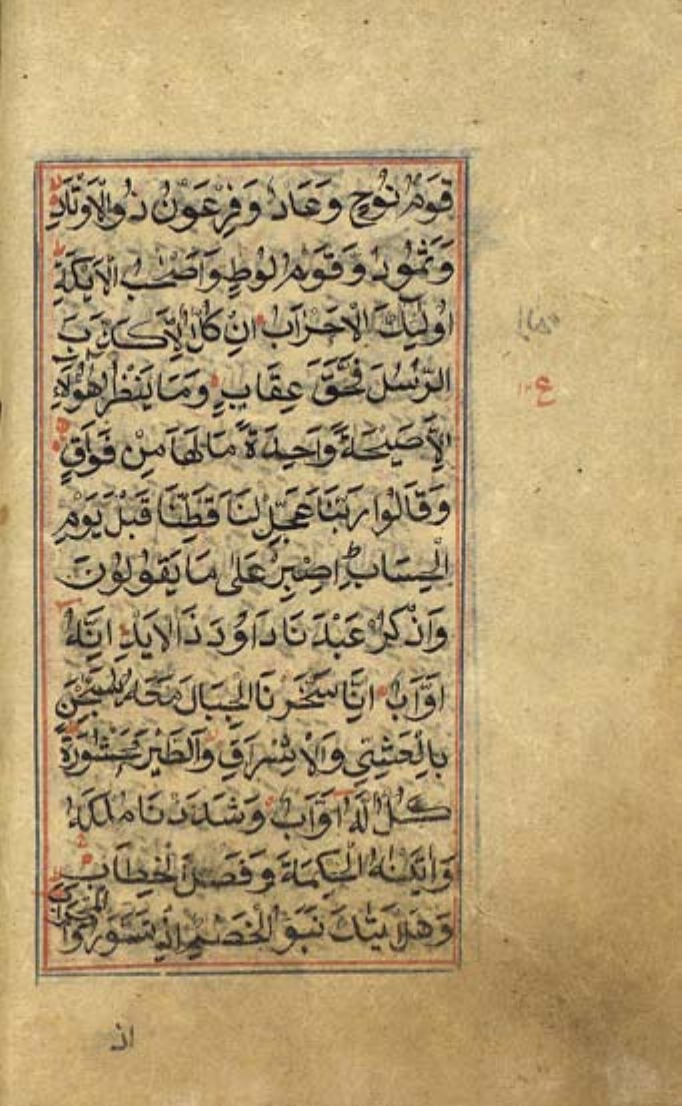 قَوْمُ نُوحٍ وَعَادٌ وَفِرْعَوْنُ ذُو الْاَوْتَادِ
وَثَمُودُ وَقَوْمُ لُوطٍ وَاَصْحٰبُ الْاَيْكَةِ
اُولٰئِكَ الْاَحْزَابُ اِنْ كُلٌّ اِلَّا كَذَّبَ
الرُّسُلَ فَحَقَّ عِقَابِ وَمَا يَنْظُرُ هٰؤُلَاءِ
اِلَّا صَيْحَةً وَاحِدَةً مَا لَهَا مِنْ فَوَاقٍ
وَقَالُوا رَبَّنَا عَجِّلْ لَنَا قِطَّنَا قَبْلَ يَوْمِ
الْحِسَابِ اِصْبِرْ عَلٰى مَا يَقُولُونَ
وَاذْكُرْ عَبْدَنَا دَاوُدَ ذَا الْاَيْدِ اِنَّهُ
اَوَّابٌ اِنَّا سَخَّرْنَا الْجِبَالَ مَعَهُ يُسَبِّحْنَ
بِالْعَشِيِّ وَالْاِشْرَاقِ وَالطَّيْرَ مَحْشُورَةً
كُلٌّ لَهُ اَوَّابٌ وَشَدَدْنَا مُلْكَهُ
وَاٰتَيْنٰهُ الْحِكْمَةَ وَفَصْلَ الْخِطَابِ
وَهَلْ اَتٰكَ نَبَؤُا الْخَصْمِ اِذْ تَسَوَّرُوا الْمِحْرَابَ
ع
اذ